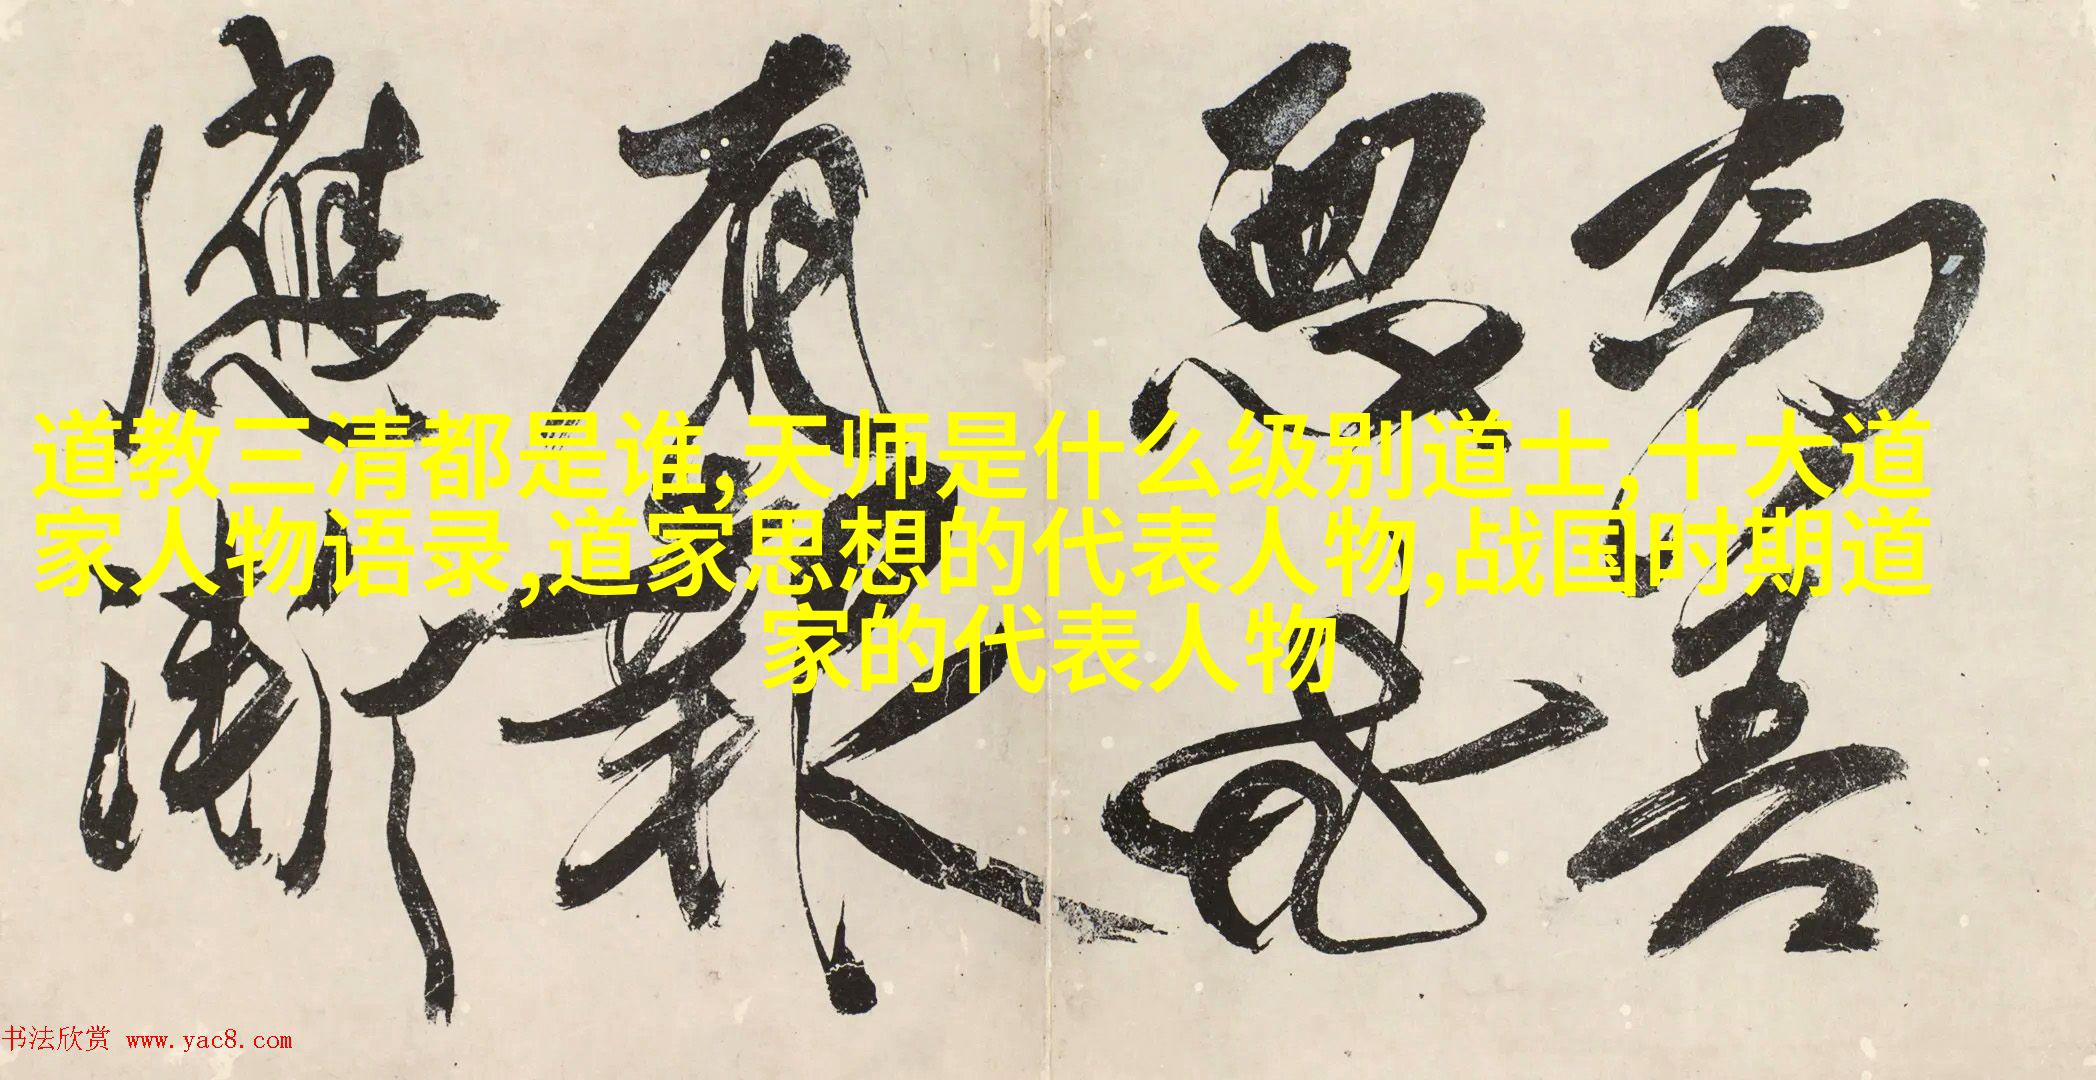 為善
惡或
有報
應漸
道教三清都是谁,天师是什么级别道士,十大道
家人物语录,道家思想的代表人物,战国时期道
家的代表人物
书法欣赏 www.yac8.com